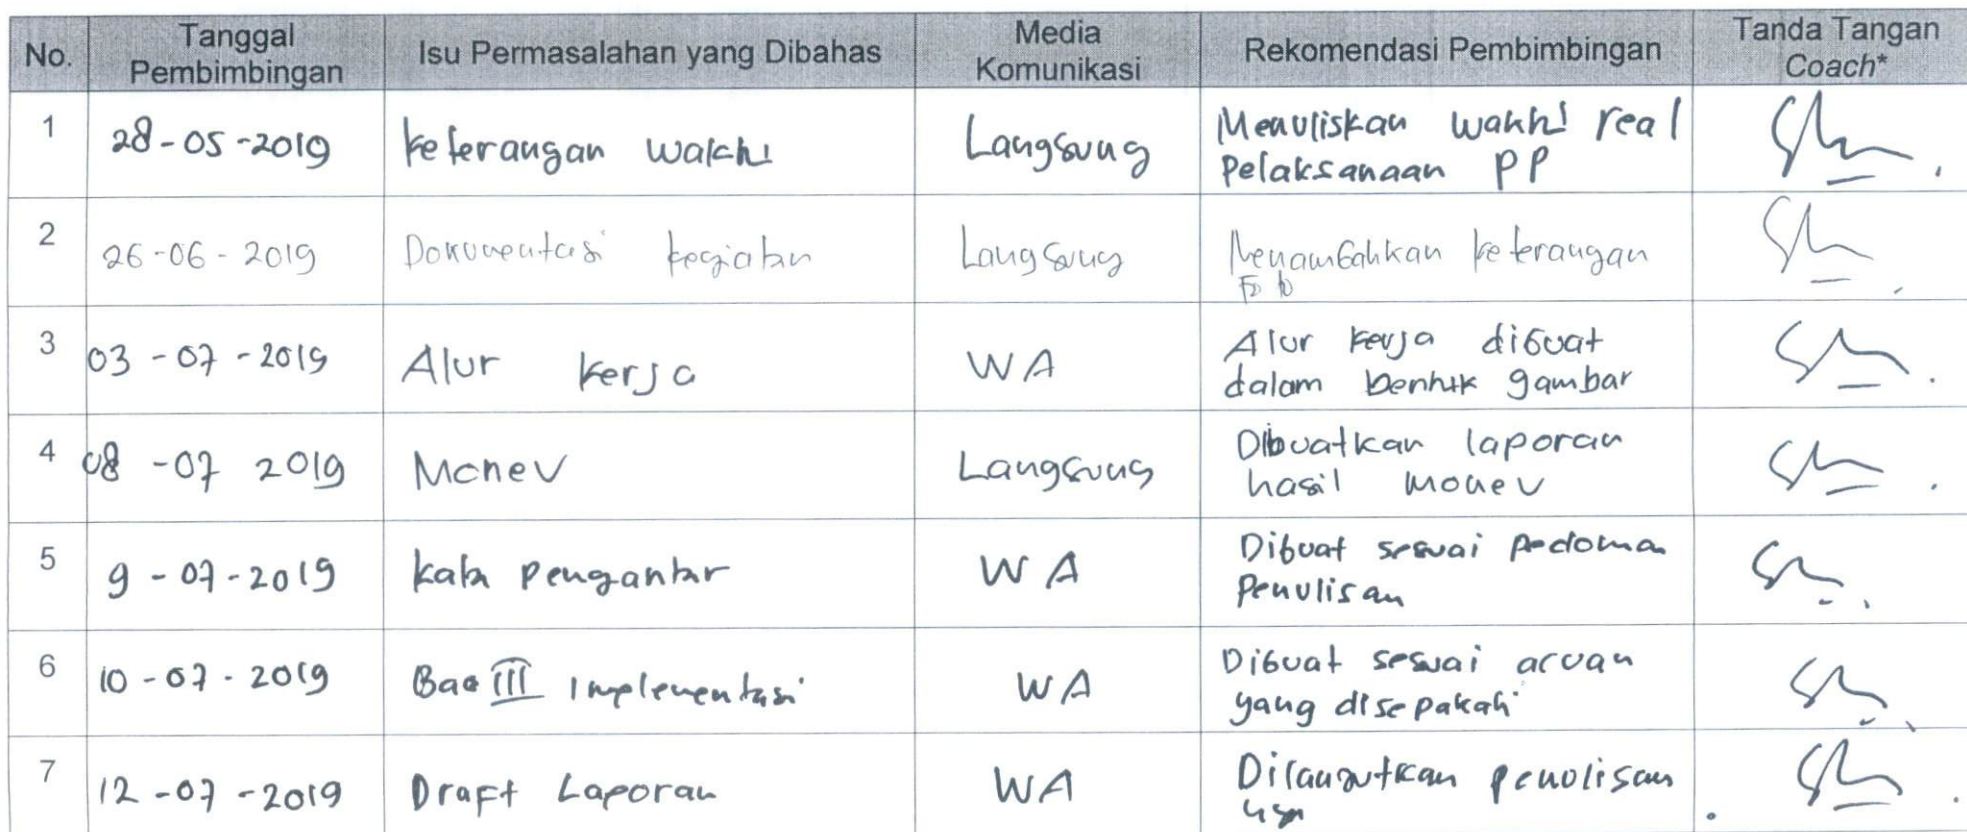 No. Tanggal Pembimbingan Isu Permasalahan yang Dibahas Media Komunikasi Rekomendasi Pembimbingan Tanda Tangan Coach*
1 28-05-2019 keterangan waktu Langsung Menuliskan waktu real
Pelaksanaan PP
2 26-06-2019 Dokumentasi kegiatan Langsung Menambahkan keterangan
Foto
3 03-07-2019 Alur kerja WA Alur kerja dibuat
dalam bentuk gambar
4 08-07 2019 Monev Langsung Dibuatkan laporan
hasil monev
5 9-07-2019 kata pengantar WA Dibuat sesuai pedoman
Penulisan
6 10-07-2019 Bab III Implementasi WA Dibuat sesuai acuan
yang disepakati
7 12-07-2019 Draft Laporan WA Dilanjutkan penulisan